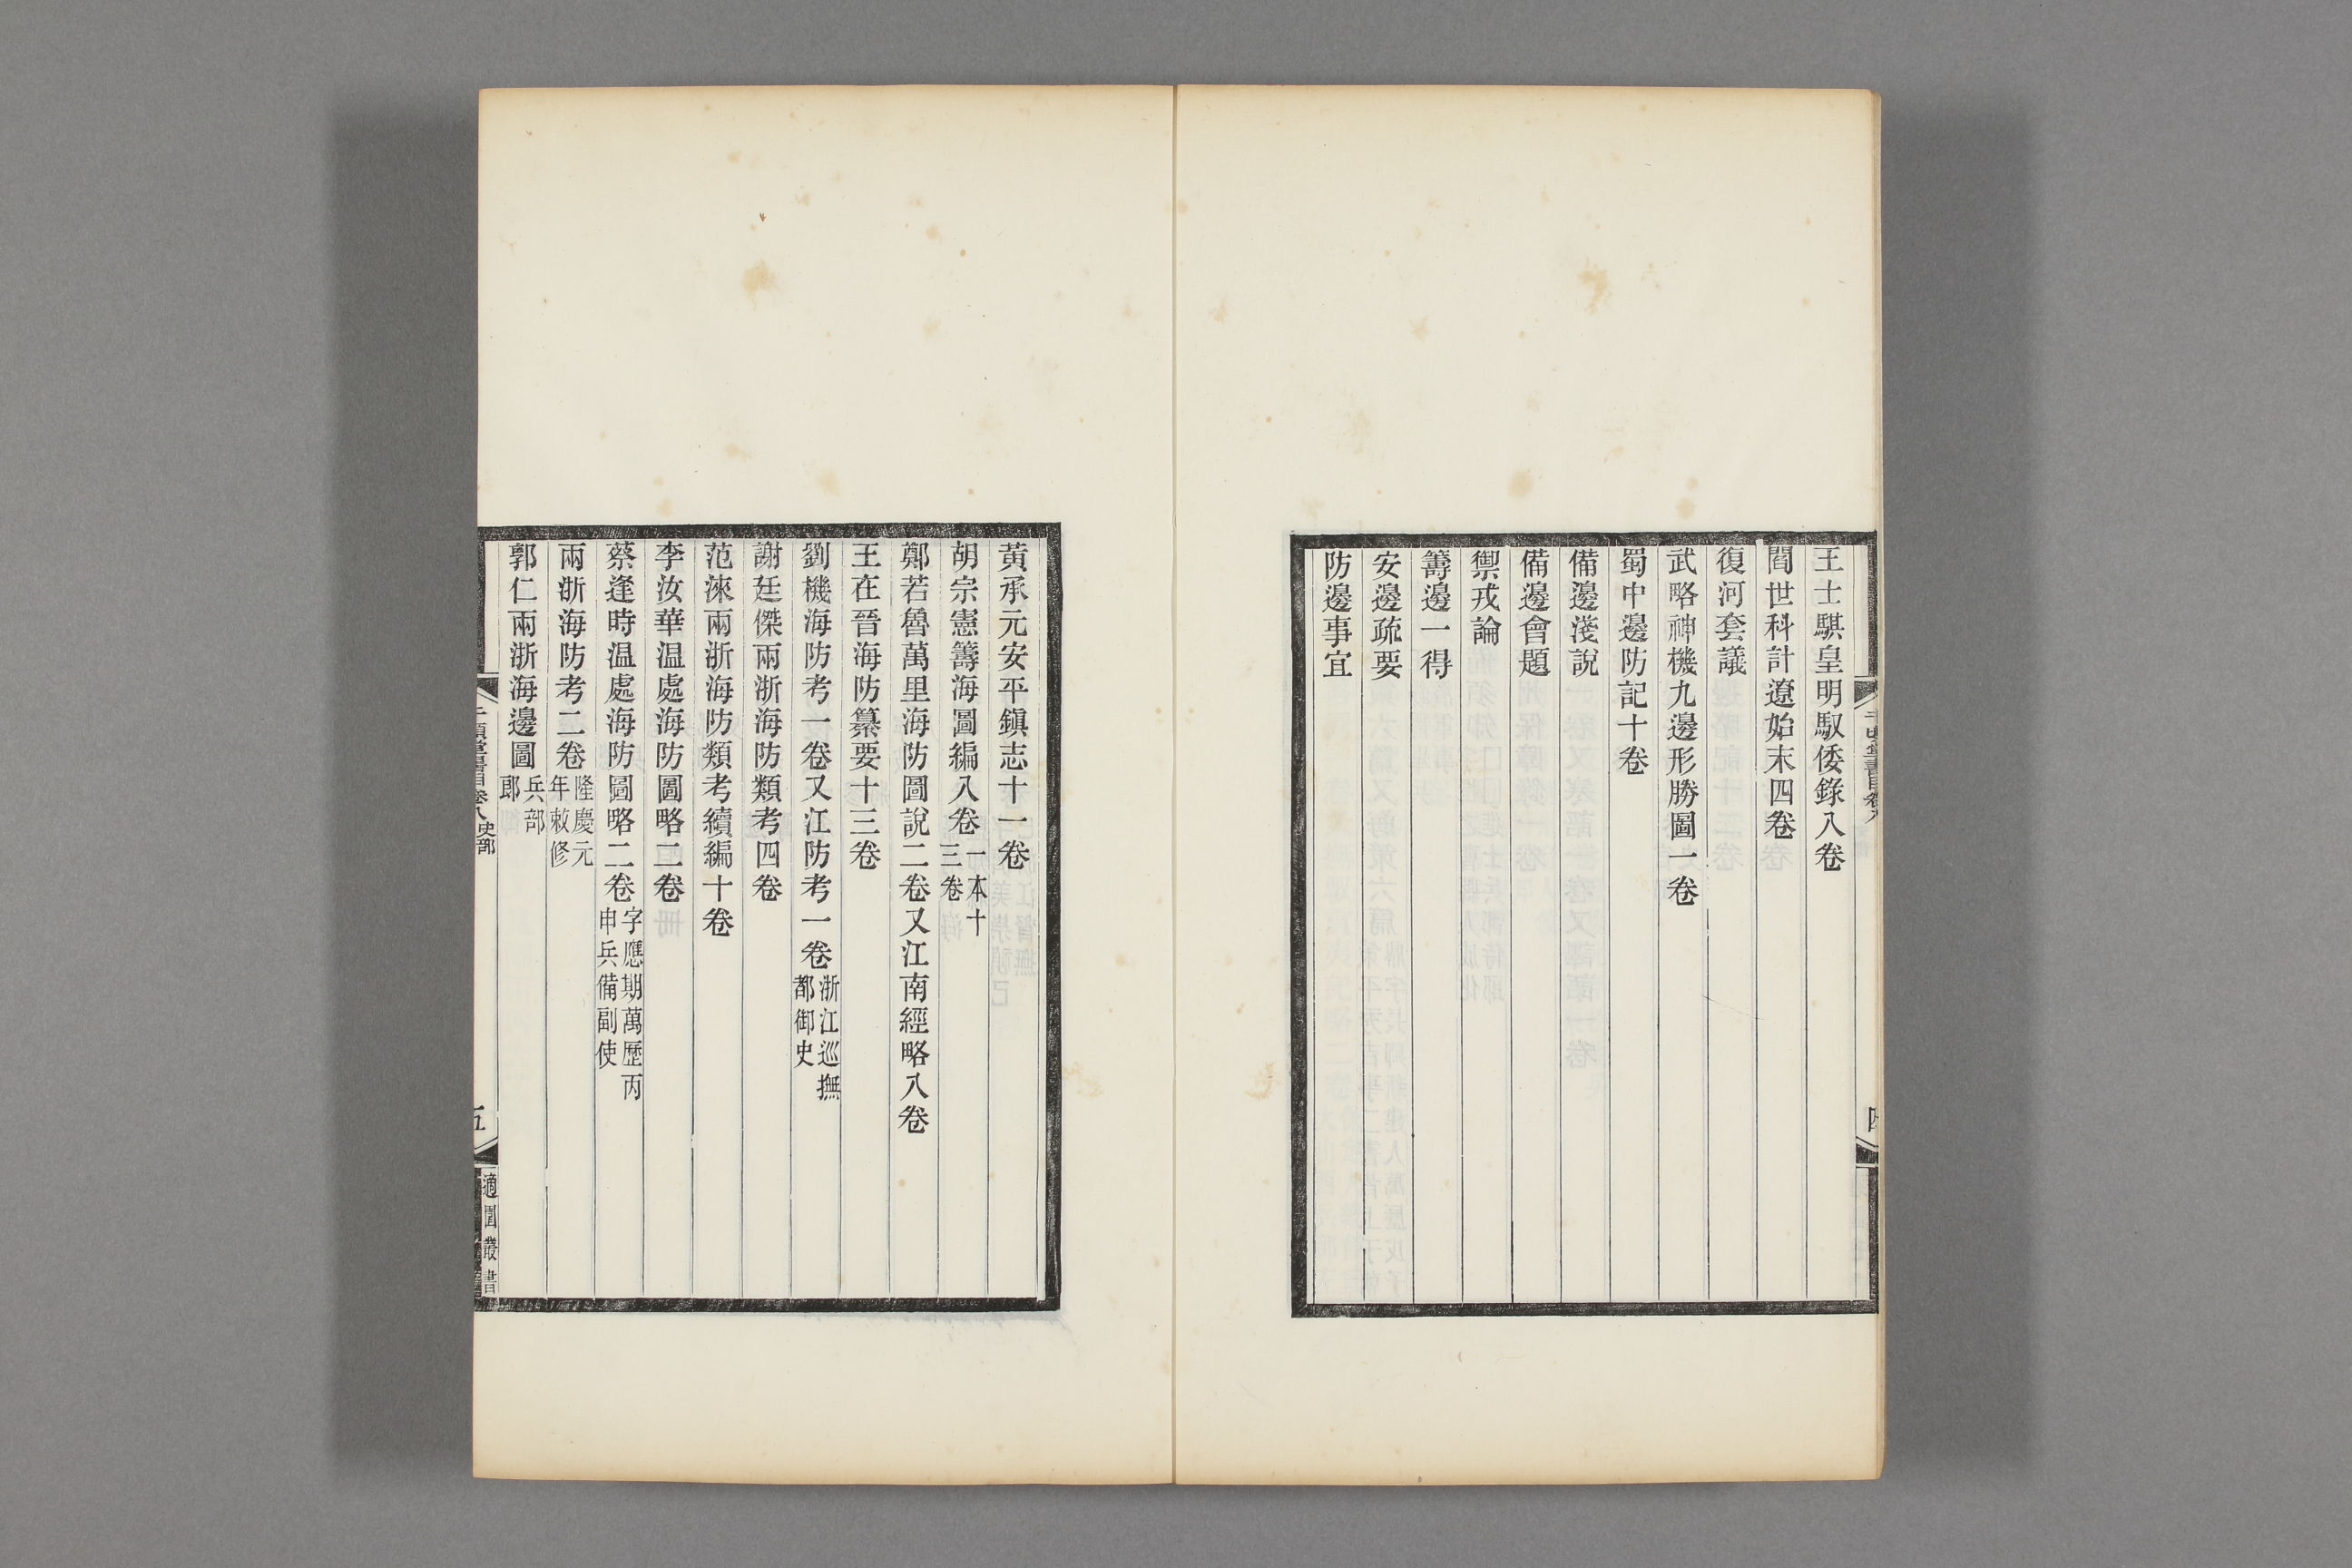 王士騏皇明馭倭錄八卷
閻世科計遼始末四卷
復河套議
武略神機九邊形勝圖一卷
蜀中邊防記十卷
備邊淺說
備邊會題
禦戎論
籌邊一得
安邊疏要
防邊事宜
黃承元安平鎮志十一卷
胡宗憲籌海圖編八卷一本十三卷
鄭若魯萬里海防圖說二卷又江南經略八卷
王在晉海防纂要十三卷
劉機海防考一卷又江防考一卷浙江巡撫都御史
謝廷傑兩浙海防類考四卷
范淶兩浙海防類考續編十卷
李汝華温處海防圖略二卷
蔡逢時温處海防圖略二卷字應期萬歷丙申兵備副使
兩浙海防考二卷隆慶元年敕修
郭仁兩浙海邊圖兵部郎
千頃堂書目卷八史部
五
適園叢書